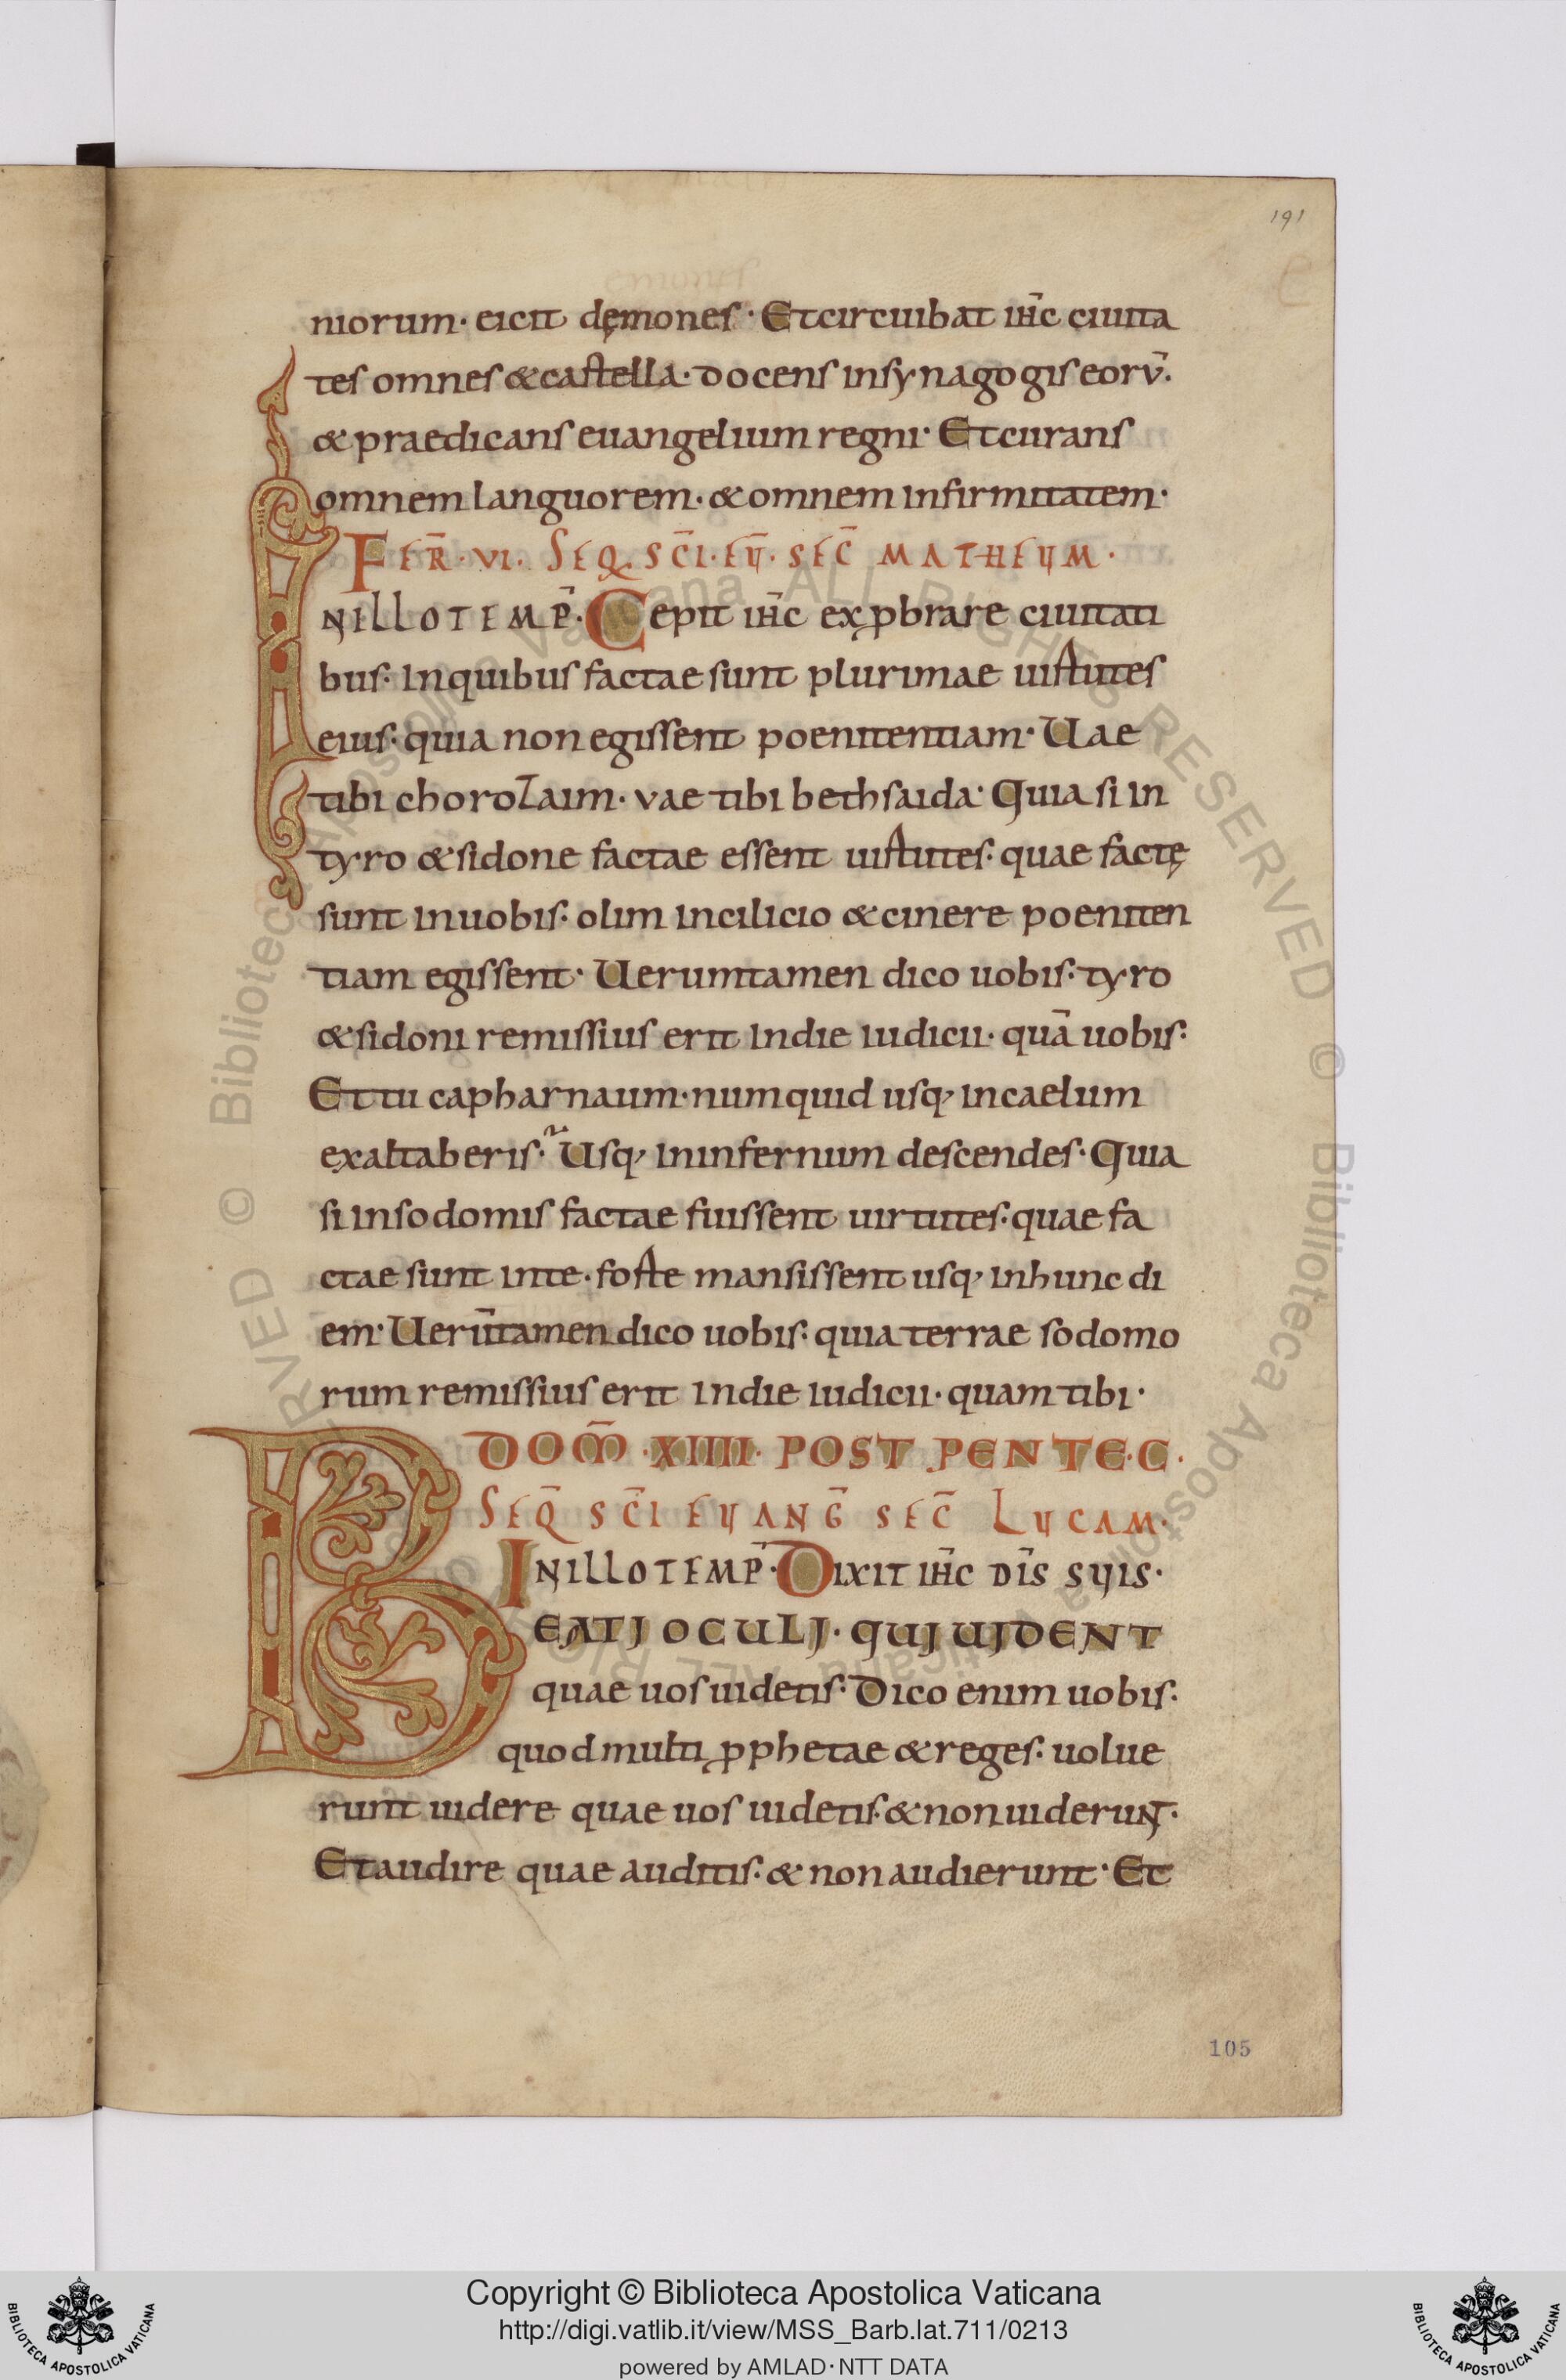 191
niorum· eicit dęmones· Et circuibat ih̄c ciuita
tes omnes & castella· docens in synagogis eorū·
& praedicans euangelium regni· Et curans
omnem languorem· & omnem infirmitatem·
FER̄· VI· SEQ· SC̄I· EŪ· SEC̄ MATHEUM·
IN ILLO TEMP̄· Cepit ih̄c exꝓbrare ciuitati
bus· In quibus factae sunt plurimae uirtutes
eius· quia non egissent poenitentiam· Uae
tibi chorozaim· vae tibi bethsaida· Quia si in
tyro & sidone factae essent uirtutes· quae factę
sunt in uobis· olim in cilicio & cinere poeniten
tiam egissent· Uerumtamen dico uobis· tyro
& sidoni remissius erit In die iudicii· quā uobis·
Et tu capharnaum· numquid usq; in caelum
exaltaberis· Usq; in infernum descendes· Quia
si in sodomis factae fuissent uirtutes· quae fa
ctae sunt in te· forte mansissent usq; in hunc di
em· Uerūtamen dico uobis· quia terrae sodomo
rum remissius erit In die iudicii· quam tibi·
DOM̄· XIIII· POST PENTEC·
SEQ̄ SC̄I EUANḠ SEC̄ LUCAM·
IN ILLO TEMP̄· DIXIT IH̄C DIS̄ SUIS·
BEATI OCULI· QUI UIDENT
quae uos uidetis· Dico enim uobis·
quod multi ꝓphetae & reges· uolue
runt uidere quae uos uidetis· & non uiderunt·
Et audire quae auditis· & non audierunt· Et
105
© Biblioteca Apostolica Vaticana ALL RIGHTS RESERVED © Biblioteca Apostolica Vaticana ALL RIGHTS RESERVED
Copyright © Biblioteca Apostolica Vaticana
http://digi.vatlib.it/view/MSS_Barb.lat.711/0213
powered by AMLAD·NTT DATA
BIBLIOTECA APOSTOLICA VATICANA
BIBLIOTECA APOSTOLICA VATICANA